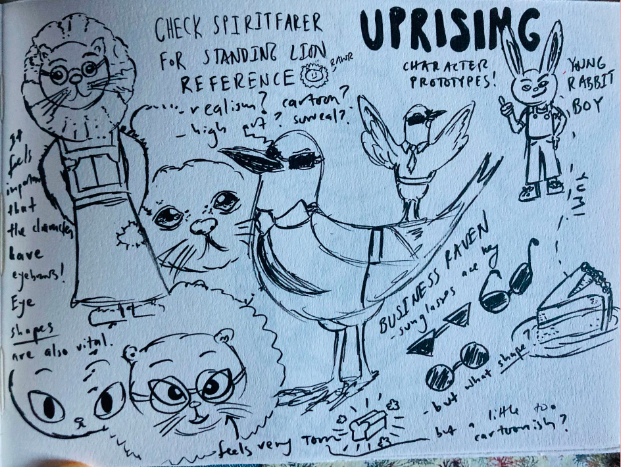 CHECK SPIRITFARER
FOR STANDING LION
REFERENCE
RAWR
- realism? cartoon?
- high art? surreal?
UPRISING
CHARACTER
PROTOTYPES!
YOUNG
RABBIT
BOY
YUM!
It
feels
important
that
the characters
have
eyebrows!
Eye
shapes
are also vital.
BUSINESS RAVEN
- sunglasses are key
- but what shape?
feels very Tom
but a little too
cartoonish?